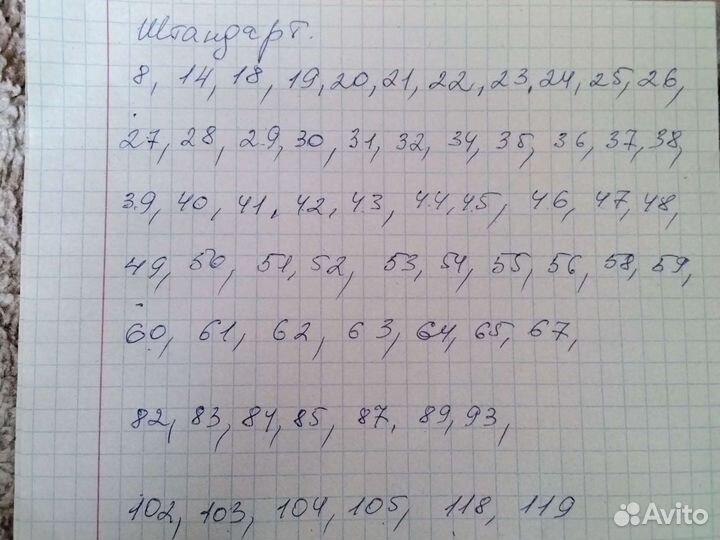 Штандарт.
8, 14, 18, 19, 20, 21, 22, 23, 24, 25, 26,
27, 28, 29, 30, 31, 32, 34, 35, 36, 37, 38,
39, 40, 41, 42, 43, 44, 45, 46, 47, 48,
49, 50, 51, 52, 53, 54, 55, 56, 58, 59,
60, 61, 62, 63, 64, 65, 67,
82, 83, 84, 85, 87, 89, 93,
102, 103, 104, 105, 118, 119
Avito